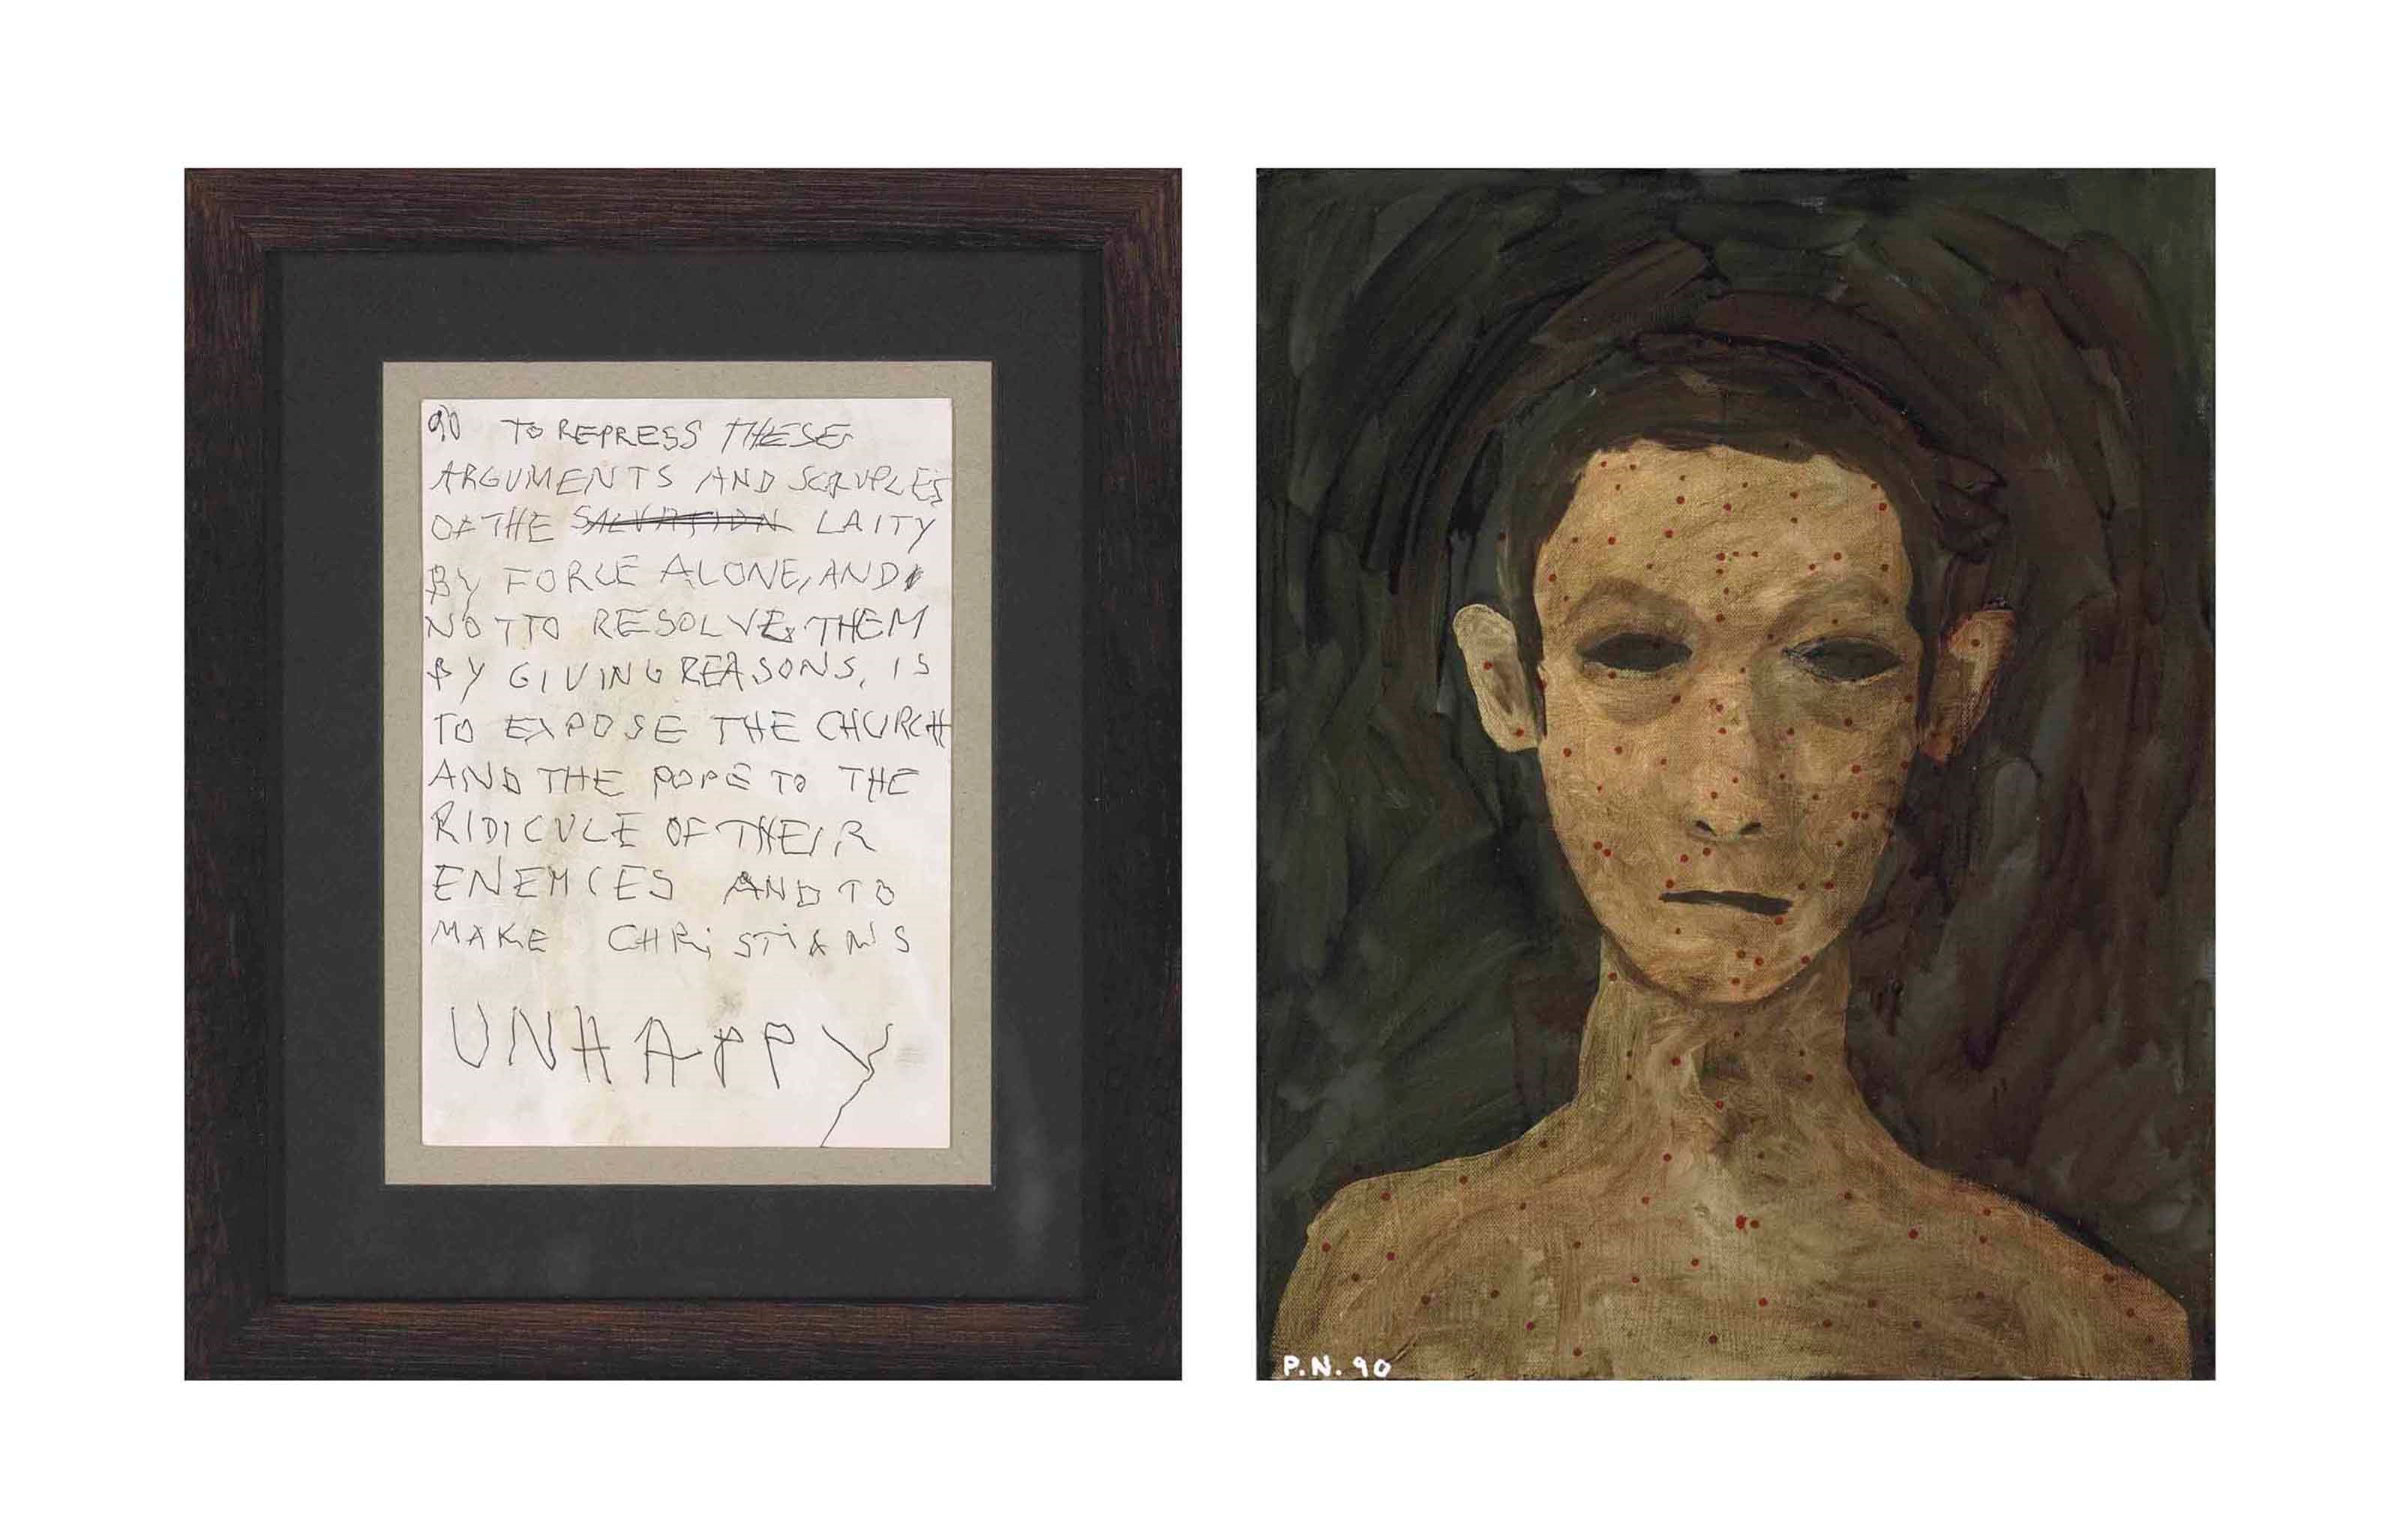 90 TO REPRESS THESE
ARGUMENTS AND SCRUPLES
OF THE SALVATION LAITY
BY FORCE ALONE, AND
NOT TO RESOLVE THEM
BY GIVING REASONS, IS
TO EXPOSE THE CHURCH
AND THE POPE TO THE
RIDICULE OF THEIR
ENEMIES AND TO
MAKE CHRISTIANS
UNHAPPY
P.N. 90